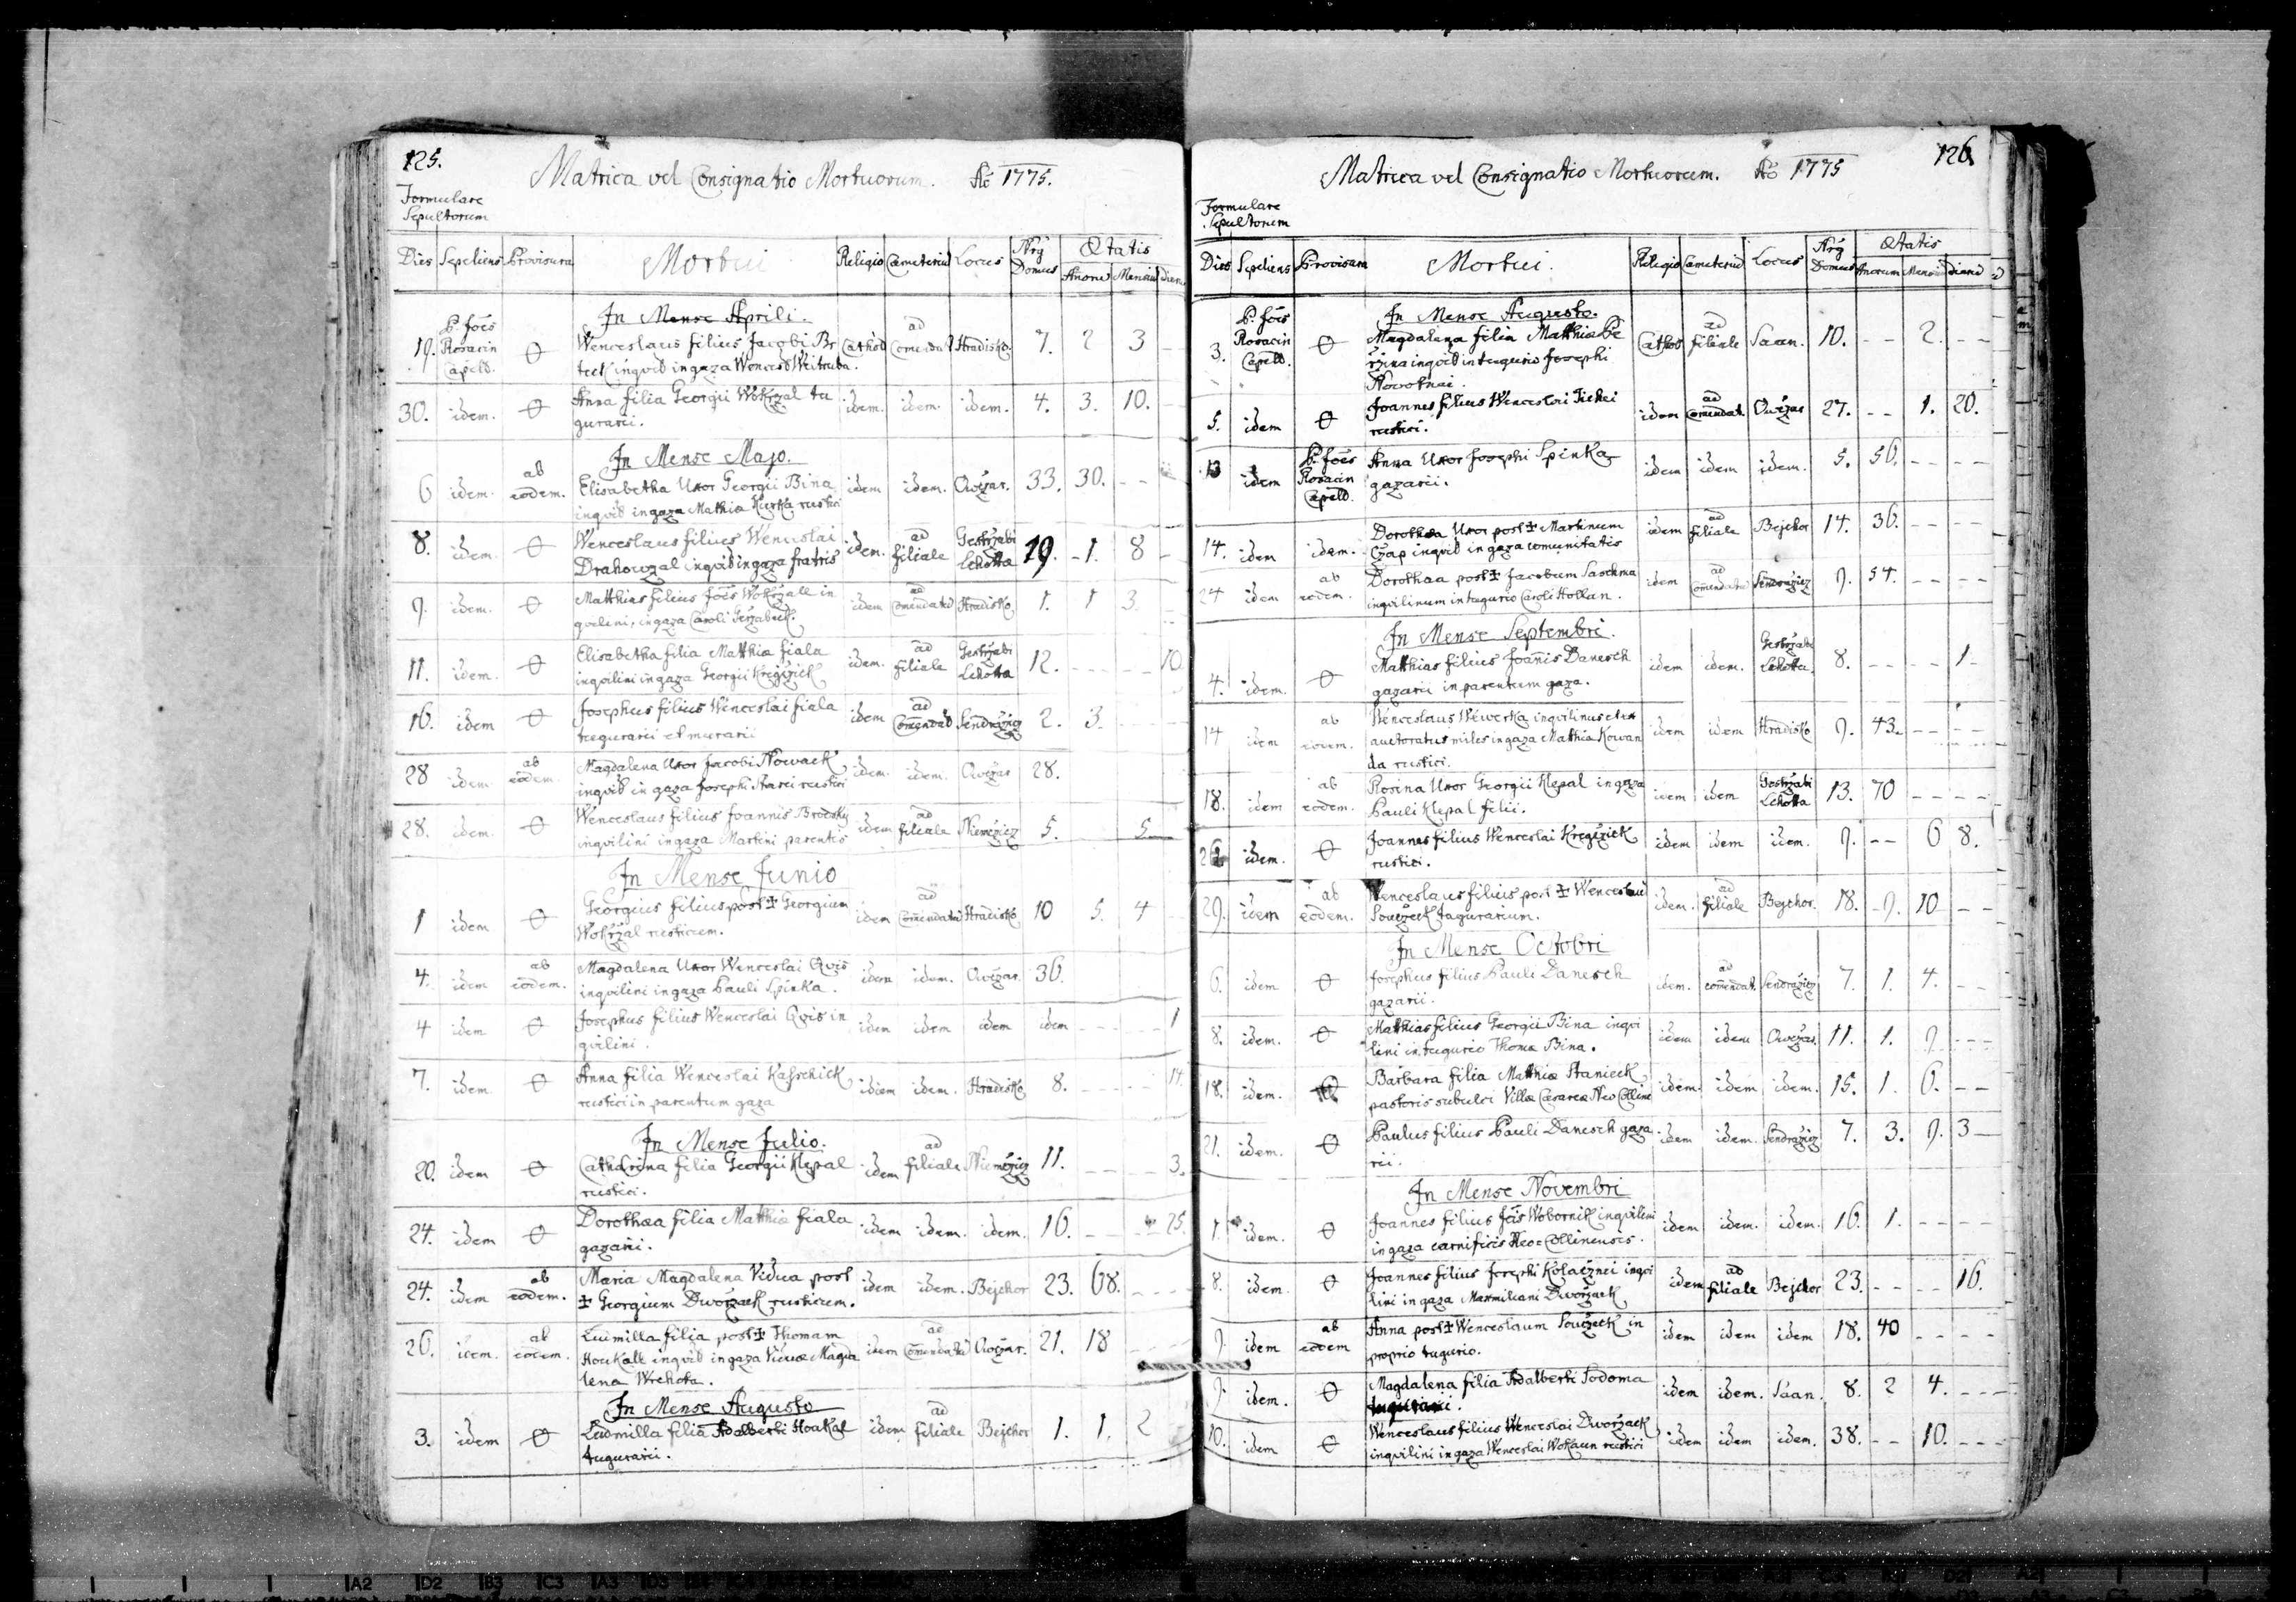 125.
Matrica vel Consignatio Mortuorum. Aõ 1775.
Formulare
Sepultorum
Dies Sepeliens Provisura Mortui Religio Cæmeteriũ Locus Nrg Domus Ætatis
Añorũ Mensiũ Dierũ
In Mense Aprili.
19. P. Joẽs Rosacin Capell. Wenceslaus filius Jacobi Br Cathol ad Comendat Hradisko. 7. 2 3
teck inqvil in gaza Wencesl Weitruba.
30. idem. Anna filia Georgii Wokrzal tu idem. idem. idem. 4. 3. 10.
gurarii.
In Mense Majo.
6 idem. ab eodem. Elisabetha Uxor Georgii Bina idem idem. Owczar. 33. 30.
inqvil in gaza Mathiæ Kurka rustici
8. idem. Wenceslaus filius Wenceslai idem. ad filiale Gestrzabi Lehotta 19. 1. 8
Drahowzal inqvil in gaza fratris
9. idem. Matthias filius Joẽs Wokrzall in idem ad Comendatã Hradisko. 1. 1 3.
qvilini, in gaza Caroli Gerzabeck.
11. idem Elisabetha filia Matthiæ fiala idem. ad filiale Gestrzabi Lehotta 12. 10.
inqvilini in gaza Georgii Kregzick
16. idem Josephus filius Wenceslai fiala idem ad Comendat Sendražicz 2. 3.
tugurarii et murarii
28 idem ab eodem. Magdalena Uxor Jacobi Nowack idem. idem. Owczar 28.
inqvil in gaza Josephi Starei rustici
28. idem. Wenceslaus filius Joannis Brodsky idem ad filiale Niemczicz 5. 5
inqvilini in gaza Martini parentis
In Mense Junio
1 idem Georgius filius post ‡ Georgium idem ad Comendatã Hradisko 10 5. 4
Wokrzal rusticum.
4. idem ab eodem. Magdalena Uxor Wenceslai Qvis idem idem. Owczar. 36.
inqvilini in gaza Pauli Spinka.
4 idem Josephus filius Wenceslai Qvis in idem idem idem idem 1
qvilini.
7. idem. Anna filia Wenceslai Kasschick idem idem. Hradisko 8. 14.
rustici in parentum gaza
In Mense Julio.
20. idem Catharina filia Georgii Klepal idem ad filiale Niemczicz 11. 3.
rustici.
24. idem Dorothæa filia Matthiæ fiala idem idem. idem. 16. 25.
gazarii.
24. idem ab eodem. Maria Magdalena Vidua post idem idem. Bejchor 23. 68.
‡ Georgium Dworzack rusticum.
26. idem. ab eodem. Ludmilla filia post ‡ Thomam idem ad Comendatã Owczar. 21. 18
Houkall inqvil in gaza Viduæ Magda
lena Wrchota.
In Mense Augusto
3. idem Ludmilla filia Adalberti Houkal idem ad filiale Bejchor 1. 1. 2
tugurarii.
126.
Matrica vel Consignatio Mortuorum. Aõ 1775
Formulare
Sepultorum
Dies Sepeliens Provisura Mortui. Religio Cæmeteriũ Locus Nrg Domus Ætatis
Añorum Mensiũ Dierũ
In Mense Augusto.
3. P. Joẽs Rosacin Capell. Magdalena filia Matthiæ Be Cathol ad filiale Saan. 10. 2.
rzina inqvil in tugurio Josephi
Nowotnei.
5. idem Joannes filius Wenceslai Tichei idem ad Comendat. Owczar 27. 1. 20.
rustici.
13 idem P. Joẽs Rosacin Capell. Anna Uxor Josephi Spinka idem idem idem. 5. 56.
gazarii.
14. idem idem. Dorothæa Uxor post ‡ Martinum idem ad filiale Bejchor 14. 36.
Czap inqvil in gaza comunitatis
24 idem ab eodem. Dorothæa post ‡ Jacobum Saschma idem ad Comendatã Sendražicz 9. 54.
inqvilinum in tugurio Caroli Hollan.
In Mense Septembri.
4. idem. Matthias filius Joañis Danesch idem idem. Gestrzabi Lehotta. 8. 1
gazarii in parentum gaza.
14 idem ab eodem. Wenceslaus Wewerka inqvilinus et ex idem idem Hradisko 9. 43.
auctoratus miles in gaza Mathiæ Kowan
da rustici.
18. idem ab eodem. Rosina Uxor Georgii Klepal in gaza idem idem Gestrzabi Lehotta 13. 70
Pauli Klepal filii.
idem. Joannes filius Wenceslai Kregzick idem idem idem. 9. 6 8.
rustici.
29. idem ab eodem. Wenceslaus filius post ‡ Wenceslaũ idem. ad filiale Bejchor. 18. 9. 10
Souczeck tugurarium.
In Mense Octobri
6. idem Josephus filius Pauli Danesch idem. ad comendat. Sendražicz 7. 1. 4.
gazarii.
8. idem. Mathias filius Georgii Bina inqvi idem idem Owczar. 11. 1. 9
lini in tugurio Thomæ Bina.
18. idem. Barbara filia Matthiæ Stanieck idem. idem idem. 15. 1. 6.
pastoris subulci Villæ Cæsareæ Neo Colline
21. idem. Paulus filius Pauli Danesch gaza idem idem. Sendražicz 7. 3. 9. 3
rii.
In Mense Novembri
1. idem. Joannes filius Joẽs Wobornik inqvilini idem idem. idem. 16. 1.
in gaza carnificis Neo-Collinensis.
8. idem. Joannes filius Josephi Kolacznei inqvi idem ad filiale Bejchor 23. 16.
lini in gaza Maxmiliani Dworzack
9. idem ab eodem Anna post ‡ Wenceslaum Souczeck in idem idem idem 18. 40
proprio tugurio.
9. idem. Magdalena filia Adalberti Sodoma idem idem. Saan. 8. 2 4.
tugurarii.
10. idem Wenceslaus filius Wenceslai Dworzack idem idem idem. 38. 10.
inqvilini in gaza Wenceslai Wokaun rustici